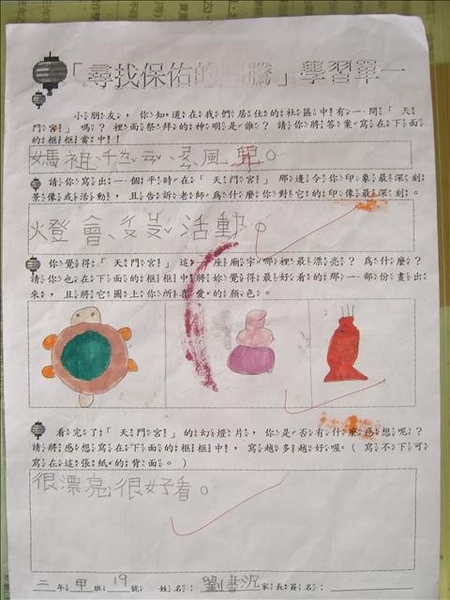 「尋找保佑的圖騰」學習單一
小朋友,你知道在我們居住的社區中有一間「天
門宮!」嗎?裡面祭拜的神明是誰?請你將答案寫在下面
的框框當中!!
媽祖
風
請你寫出一個平時在「天門宮」那邊令你印象最深刻
景像或活動,且告訴老師為什麼你對它的印像最深刻。
燈會
活動。
你覺得「天門宮」這一座廟宇哪裡最漂亮?為什麼?
請你也在下面的框框中將妳覺得最好看的那一部份畫出
來,且將它圖上你所喜愛的顏色。
看完了「天門宮」的幻燈片,你是否有什麼感想呢?
請將感想寫在下面的框框中,寫越多越好喔。(寫不下可
寫在這張紙的背面。)
很漂亮很好看。
三年甲班19號 姓名:劉 家長簽名: